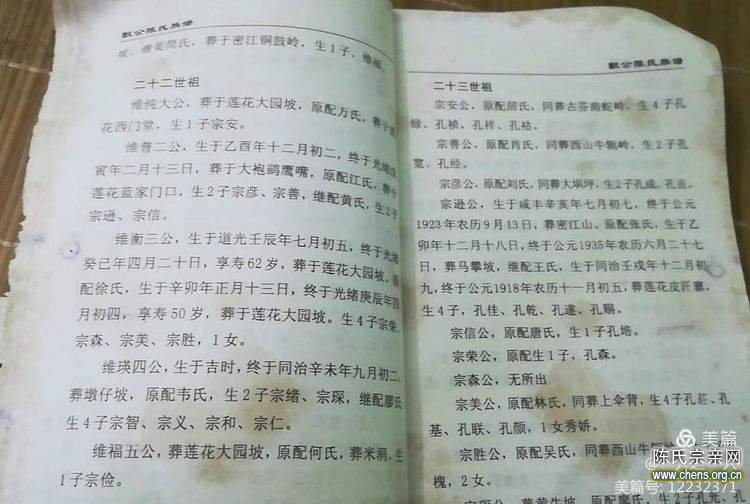 猷公陈氏族谱
坡，继妻简氏，葬于密江铜鼓岭，生1子，维福。
二十二世祖
维纯大公，葬于莲花大园坡，原配万氏，葬于莲
花西门堂，生1子宗安。
维普二公，生于乙酉年十二月初二，终于光绪戊
寅年二月十三日，葬于大袍鹞鹰嘴，原配江氏，葬于
莲花蓝家门口，生2子宗彦、宗善，继配黄氏，生2子
宗逊、宗信。
维衡三公，生于道光壬辰年七月初五，终于光绪
癸己年四月二十日，享寿62岁，葬于莲花大园坡。原
配徐氏，生于辛卯年正月十三日，终于光绪庚辰年四
月初四，享寿50岁，葬于莲花大园坡。生4子宗荣、
宗森、宗美、宗胜，1女。
维瑛四公，生于古时，终于同治辛未年九月初二，
葬墩仔坡，原配韦氏，生2子宗绪、宗琛，继配廖氏
生4子宗智、宗义、宗和、宗仁。
维福五公，葬莲花大园坡，原配何氏，葬米洞，生
1子宗俭。
猷公陈氏族谱
二十三世祖
宗安公，原配居氏，同葬古芬南蛇岭，生4子孔
绿、孔祯、孔祥、孔祜。
宗善公，原配肖氏，同葬西山牛轭岭，生2子孔
宽、孔经。
宗彦公，原配刘氏，同葬大垠坪，生2子孔咸、孔
宗逊公，生于咸丰辛亥年七月初七，终于公元
1923年农历9月13日，葬密江山。原配张氏，生于乙
卯年十二月十八日，终于公元1935年农历六月二十七
日，葬马攀坡，继配王氏，生于同治壬戌年十二月初
九，终于公元1918年农历十一月初五，葬莲花皮匠寨，
生4子，孔佳、孔乾、孔遂、孔赐。
宗信公，原配唐氏，生1子孔培。
宗荣公，原配生1子，孔森。
宗森公，无所出
宗美公，原配林氏，同葬上伞背，生4子孔莊、孔
基、孔联、孔颜，1女秀娇。
宗胜公，原配吴氏，同葬西山牛轭
槐，2女。
美篇
陈氏宗亲网
www.chens.org.cn
美篇号：12232371